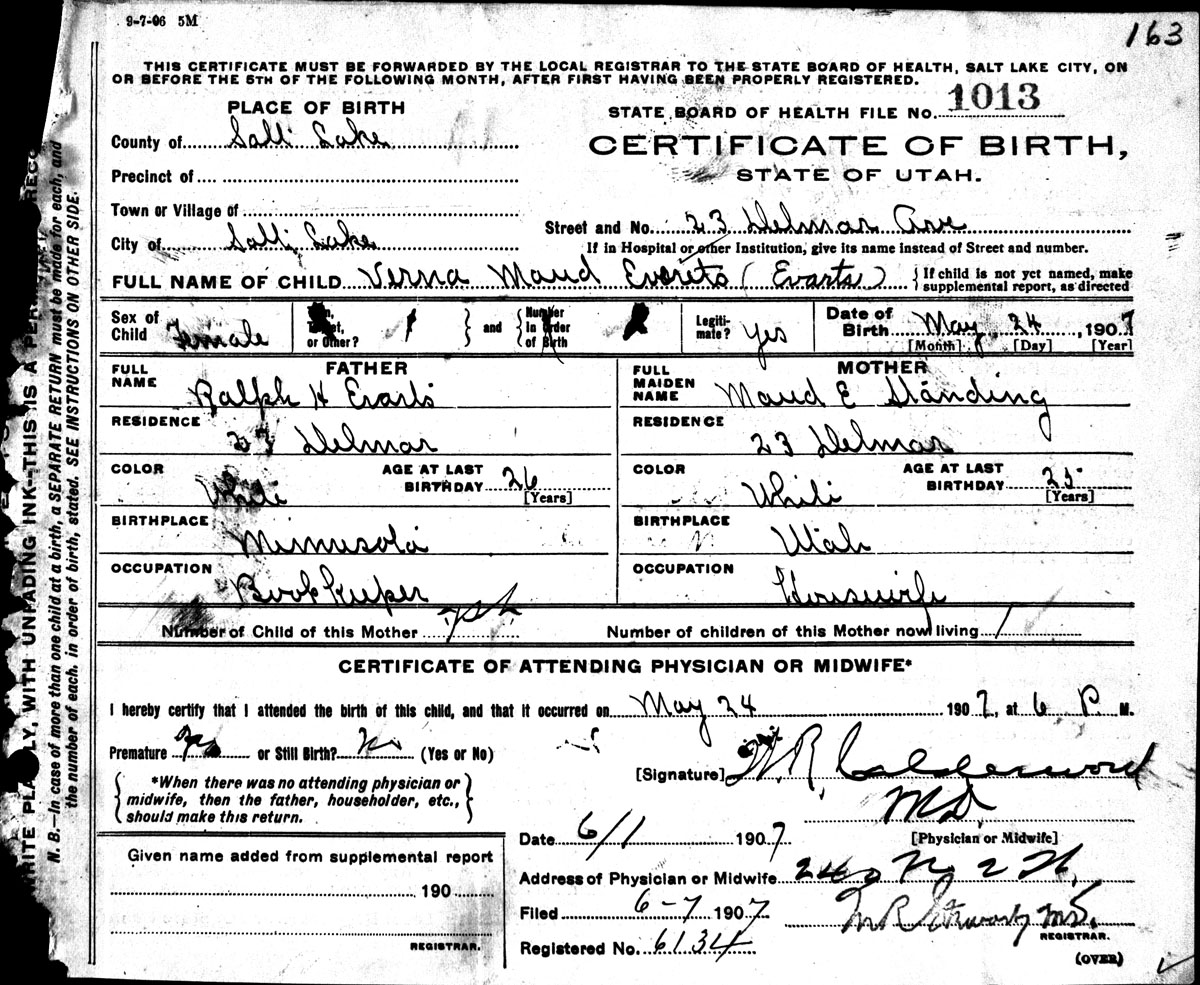 9-7-06 5M
163
THIS CERTIFICATE MUST BE FORWARDED BY THE LOCAL REGISTRAR TO THE STATE BOARD OF HEALTH, SALT LAKE CITY, ON
OR BEFORE THE 5TH OF THE FOLLOWING MONTH, AFTER FIRST HAVING BEEN PROPERLY REGISTERED.
PLACE OF BIRTH
STATE BOARD OF HEALTH FILE No. 1013
County of Salt Lake
CERTIFICATE OF BIRTH,
Precinct of
STATE OF UTAH.
Town or Village of
Street and No. 23 Delmar Ave
City of Salt Lake
If in Hospital or other Institution, give its name instead of Street and number.
FULL NAME OF CHILD Verna Maud Everets (Evarts)
{If child is not yet named, make
supplemental report, as directed
Sex of Child Female
or Other? 1
and
Number In Order of Birth
Legiti-mate? yes
Date of Birth May 24, 1907
[Month] [Day] [Year]
FATHER
MOTHER
FULL NAME Ralph H Evarts
FULL MAIDEN NAME Maud E Standing
RESIDENCE 23 Delmar
RESIDENCE 23 Delmar
COLOR White AGE AT LAST BIRTHDAY 26 [Years]
COLOR White AGE AT LAST BIRTHDAY 25 [Years]
BIRTHPLACE Minnesota
BIRTHPLACE Utah
OCCUPATION Bookkeeper
OCCUPATION Housewife
Number of Child of this Mother 1st
Number of children of this Mother now living 1
CERTIFICATE OF ATTENDING PHYSICIAN OR MIDWIFE*
I hereby certify that I attended the birth of this child, and that it occurred on May 24 1907, at 6 P. M.
Premature No or Still Birth? No (Yes or No)
[Signature] W. R. Calderwood
M.D.
[Physician or Midwife]
*When there was no attending physician or
midwife, then the father, householder, etc.,
should make this return.
Date 6/1 1907
Given name added from supplemental report
190
REGISTRAR.
Address of Physician or Midwife
Filed 6-7 1907
M.D.
REGISTRAR.
Registered No. 6134
(OVER)
WRITE PLAINLY, WITH UNFADING INK--THIS IS A
N. B.—In case of more than one child at a birth, a SEPARATE RETURN must be made for each, and
the number of each, in order of birth, stated. SEE INSTRUCTIONS ON OTHER SIDE.